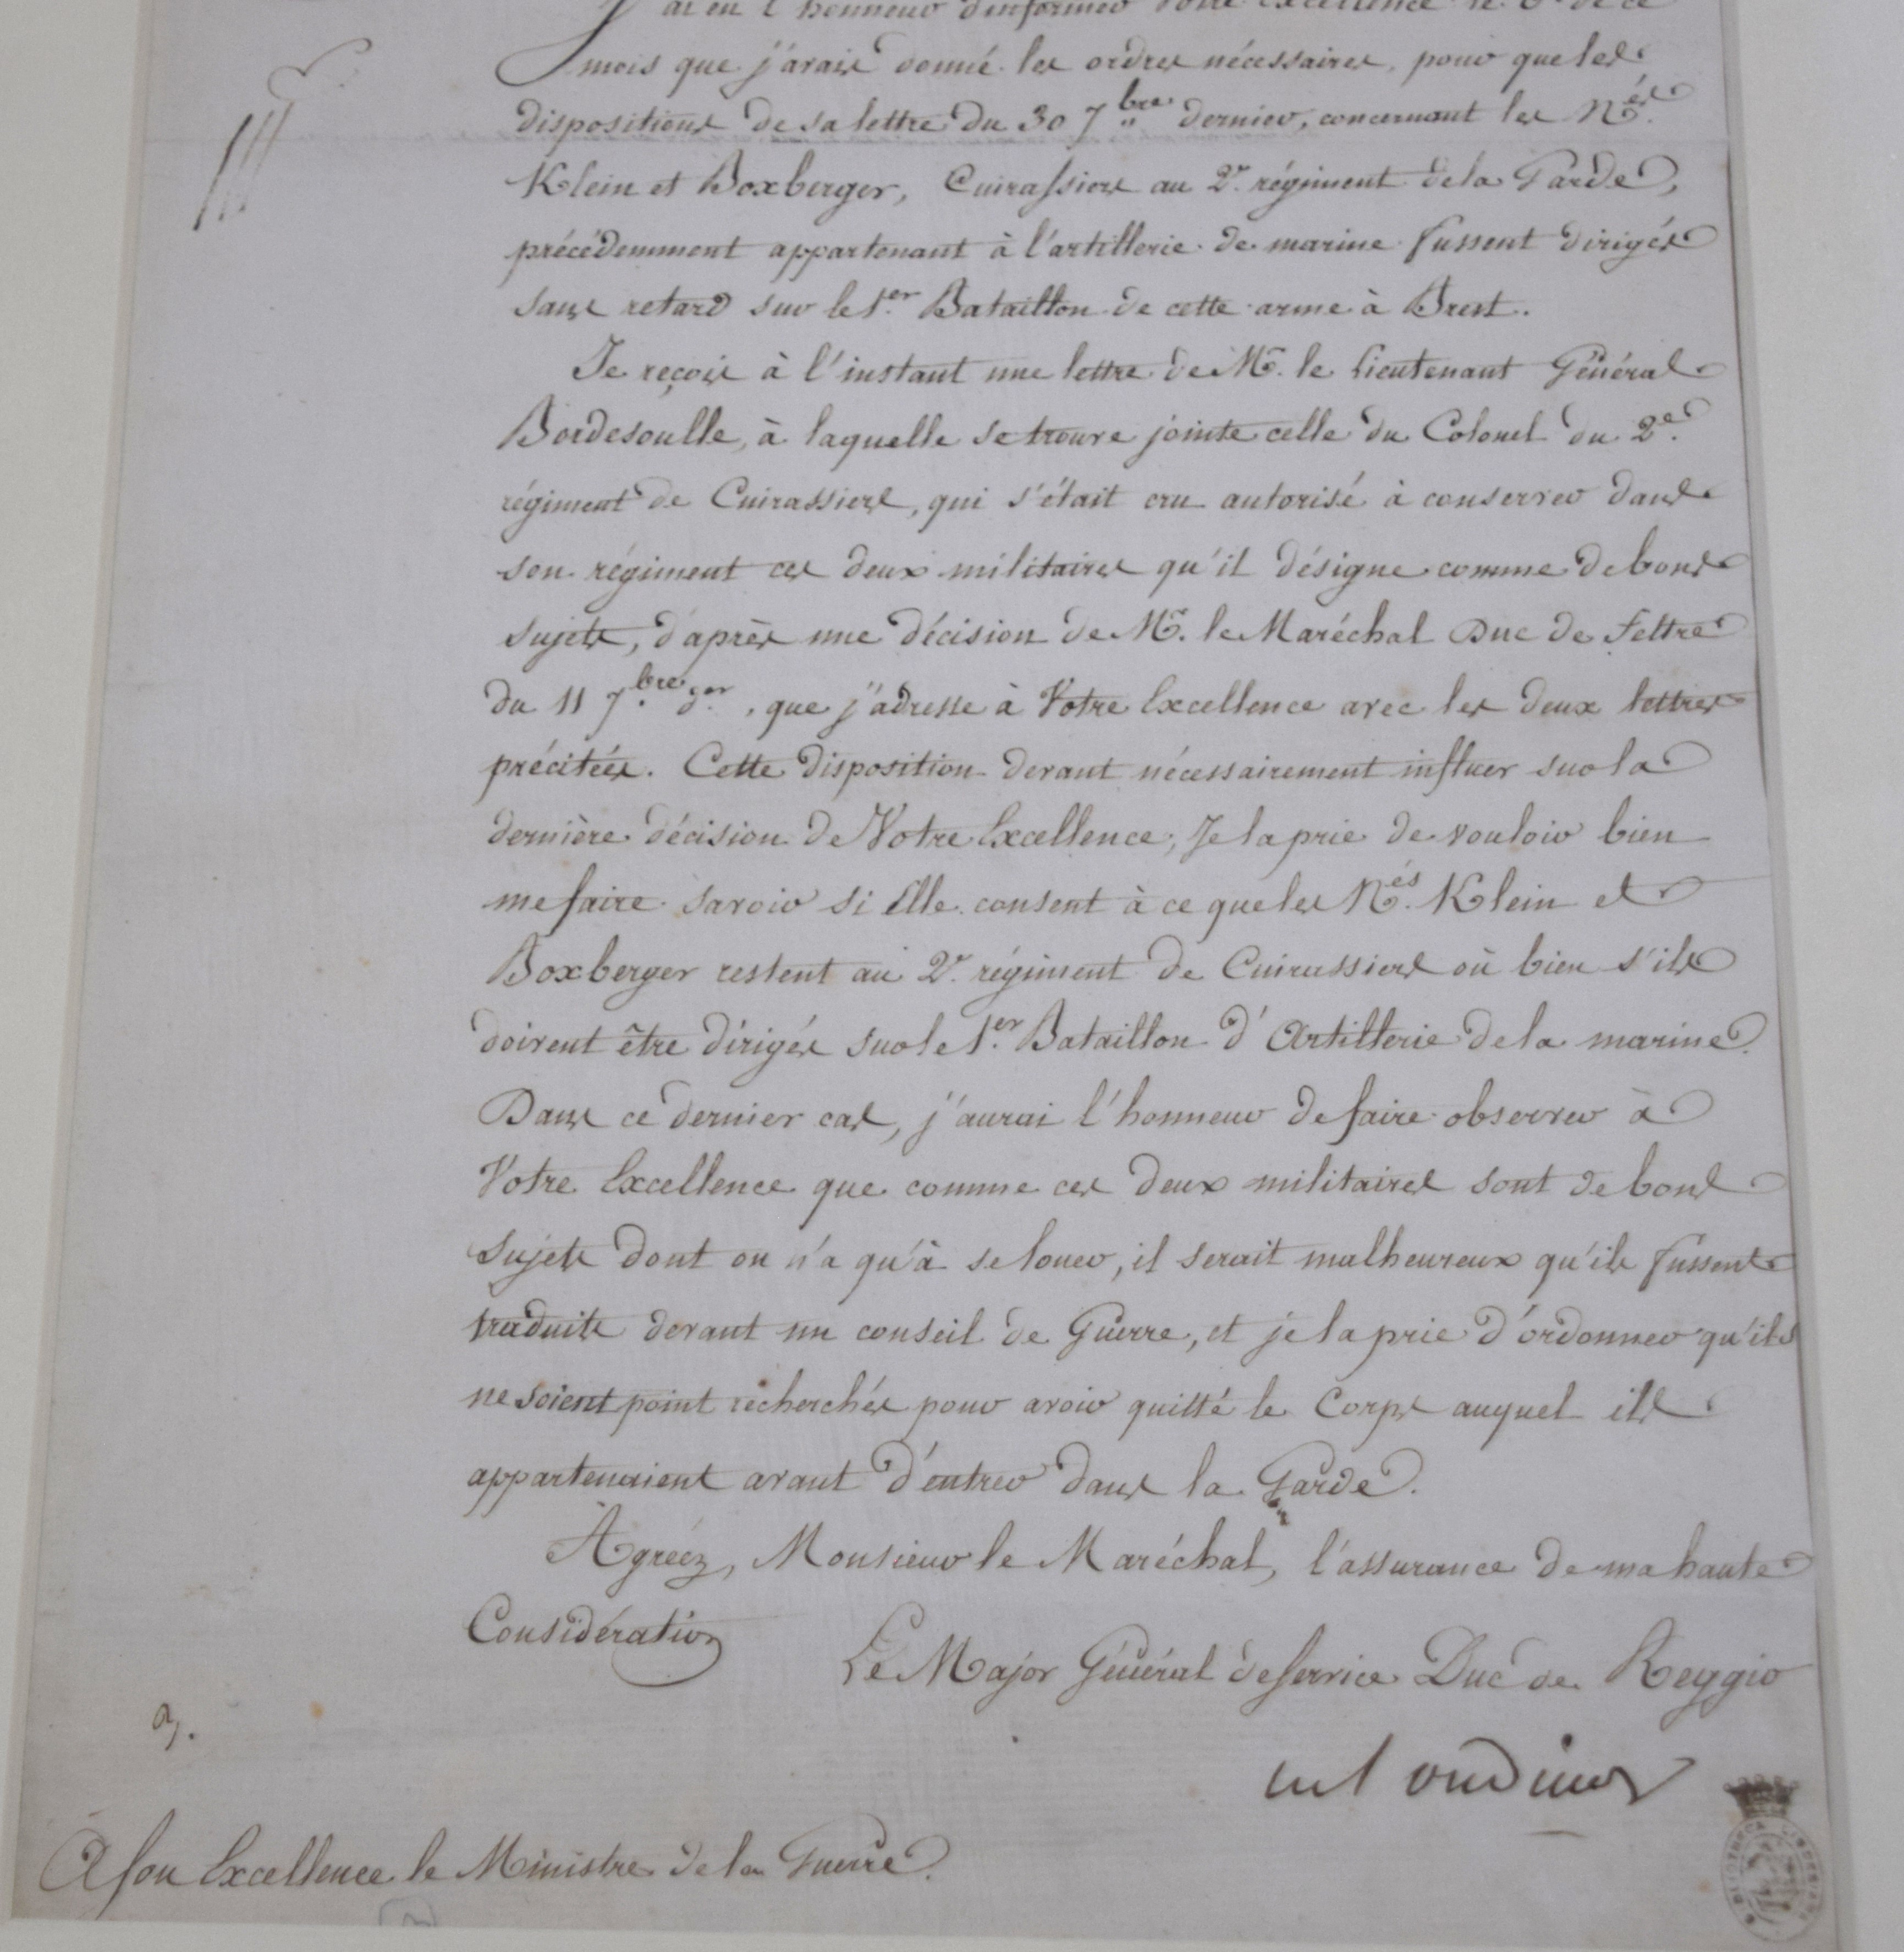 J'ai eu l'honneur d'informer Votre Excellence le 8 de ce
mois que j'avais donné les ordres nécessaires, pour que les
dispositions de sa lettre du 30 7.bre dernier, concernant les N.és
Klein et Boxberger, Cuirassiers au 2.e régiment de la Garde,
précédemment appartenant à l'artillerie de marine fussent dirigés
sans retard sur le 1.er Bataillon de cette arme à Brest.
Je reçois à l'instant une lettre de M.r le Lieutenant Général
Bordesoulle, à laquelle se trouve jointe celle du Colonel du 2.e
régiment de Cuirassiers, qui s'était cru autorisé à conserver dans
son régiment ces deux militaires qu'il désigne comme de bons
sujets, d'après une décision de M.r le Maréchal Duc de Feltre
du 11 7.bre d.er, que j'adresse à Votre Excellence avec les deux lettres
précitées. Cette disposition devant nécessairement influer sur la
dernière décision de Votre Excellence, Je la prie de vouloir bien
me faire savoir si Elle consent à ce que les N.és Klein et
Boxberger restent au 2.e régiment de Cuirassiers où bien s'ils
doivent être dirigés sur le 1.er Bataillon d'Artillerie de la marine.
Dans ce dernier cas, j'aurai l'honneur de faire observer à
Votre Excellence que comme ces deux militaires sont de bons
sujets dont on n'a qu'à se louer, il serait malheureux qu'ils fussent
traduits devant un conseil de Guerre, et je la prie d'ordonner qu'ils
ne soient point recherchés pour avoir quitté le Corps auquel ils
appartenaient avant d'entrer dans la Garde.
Agréez, Monsieur le Maréchal, l'assurance de ma haute
Considération
Le Major Général de service Duc de Reggio
Oudinot
A Son Excellence le Ministre de la Guerre.